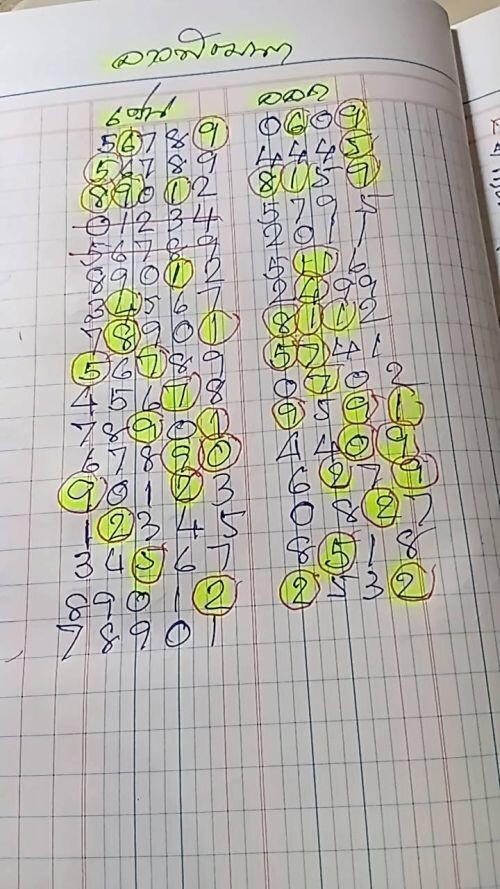 ลาวพัฒนา
เด่น ออก
5 6 7 8 9 0 6 0 9
5 6 7 8 9 4 4 4 5
8 9 0 1 2 8 1 5 9
0 1 2 3 4 5 7 9 5
5 6 7 8 9 2 0 1 1
8 9 0 1 2 5 1 1 6
3 4 5 6 7 2 4 9 9
7 8 9 0 1 8 1 1 2
5 6 7 8 9 5 7 4 1
4 5 6 7 8 0 7 0 2
7 8 9 0 1 9 5 9 1
6 7 8 9 0 4 4 0 9
9 0 1 2 3 6 2 7 9
1 2 3 4 5 0 8 2 7
3 4 5 6 7 8 5 1 8
8 9 0 1 2 2 5 3 2
7 8 9 0 1